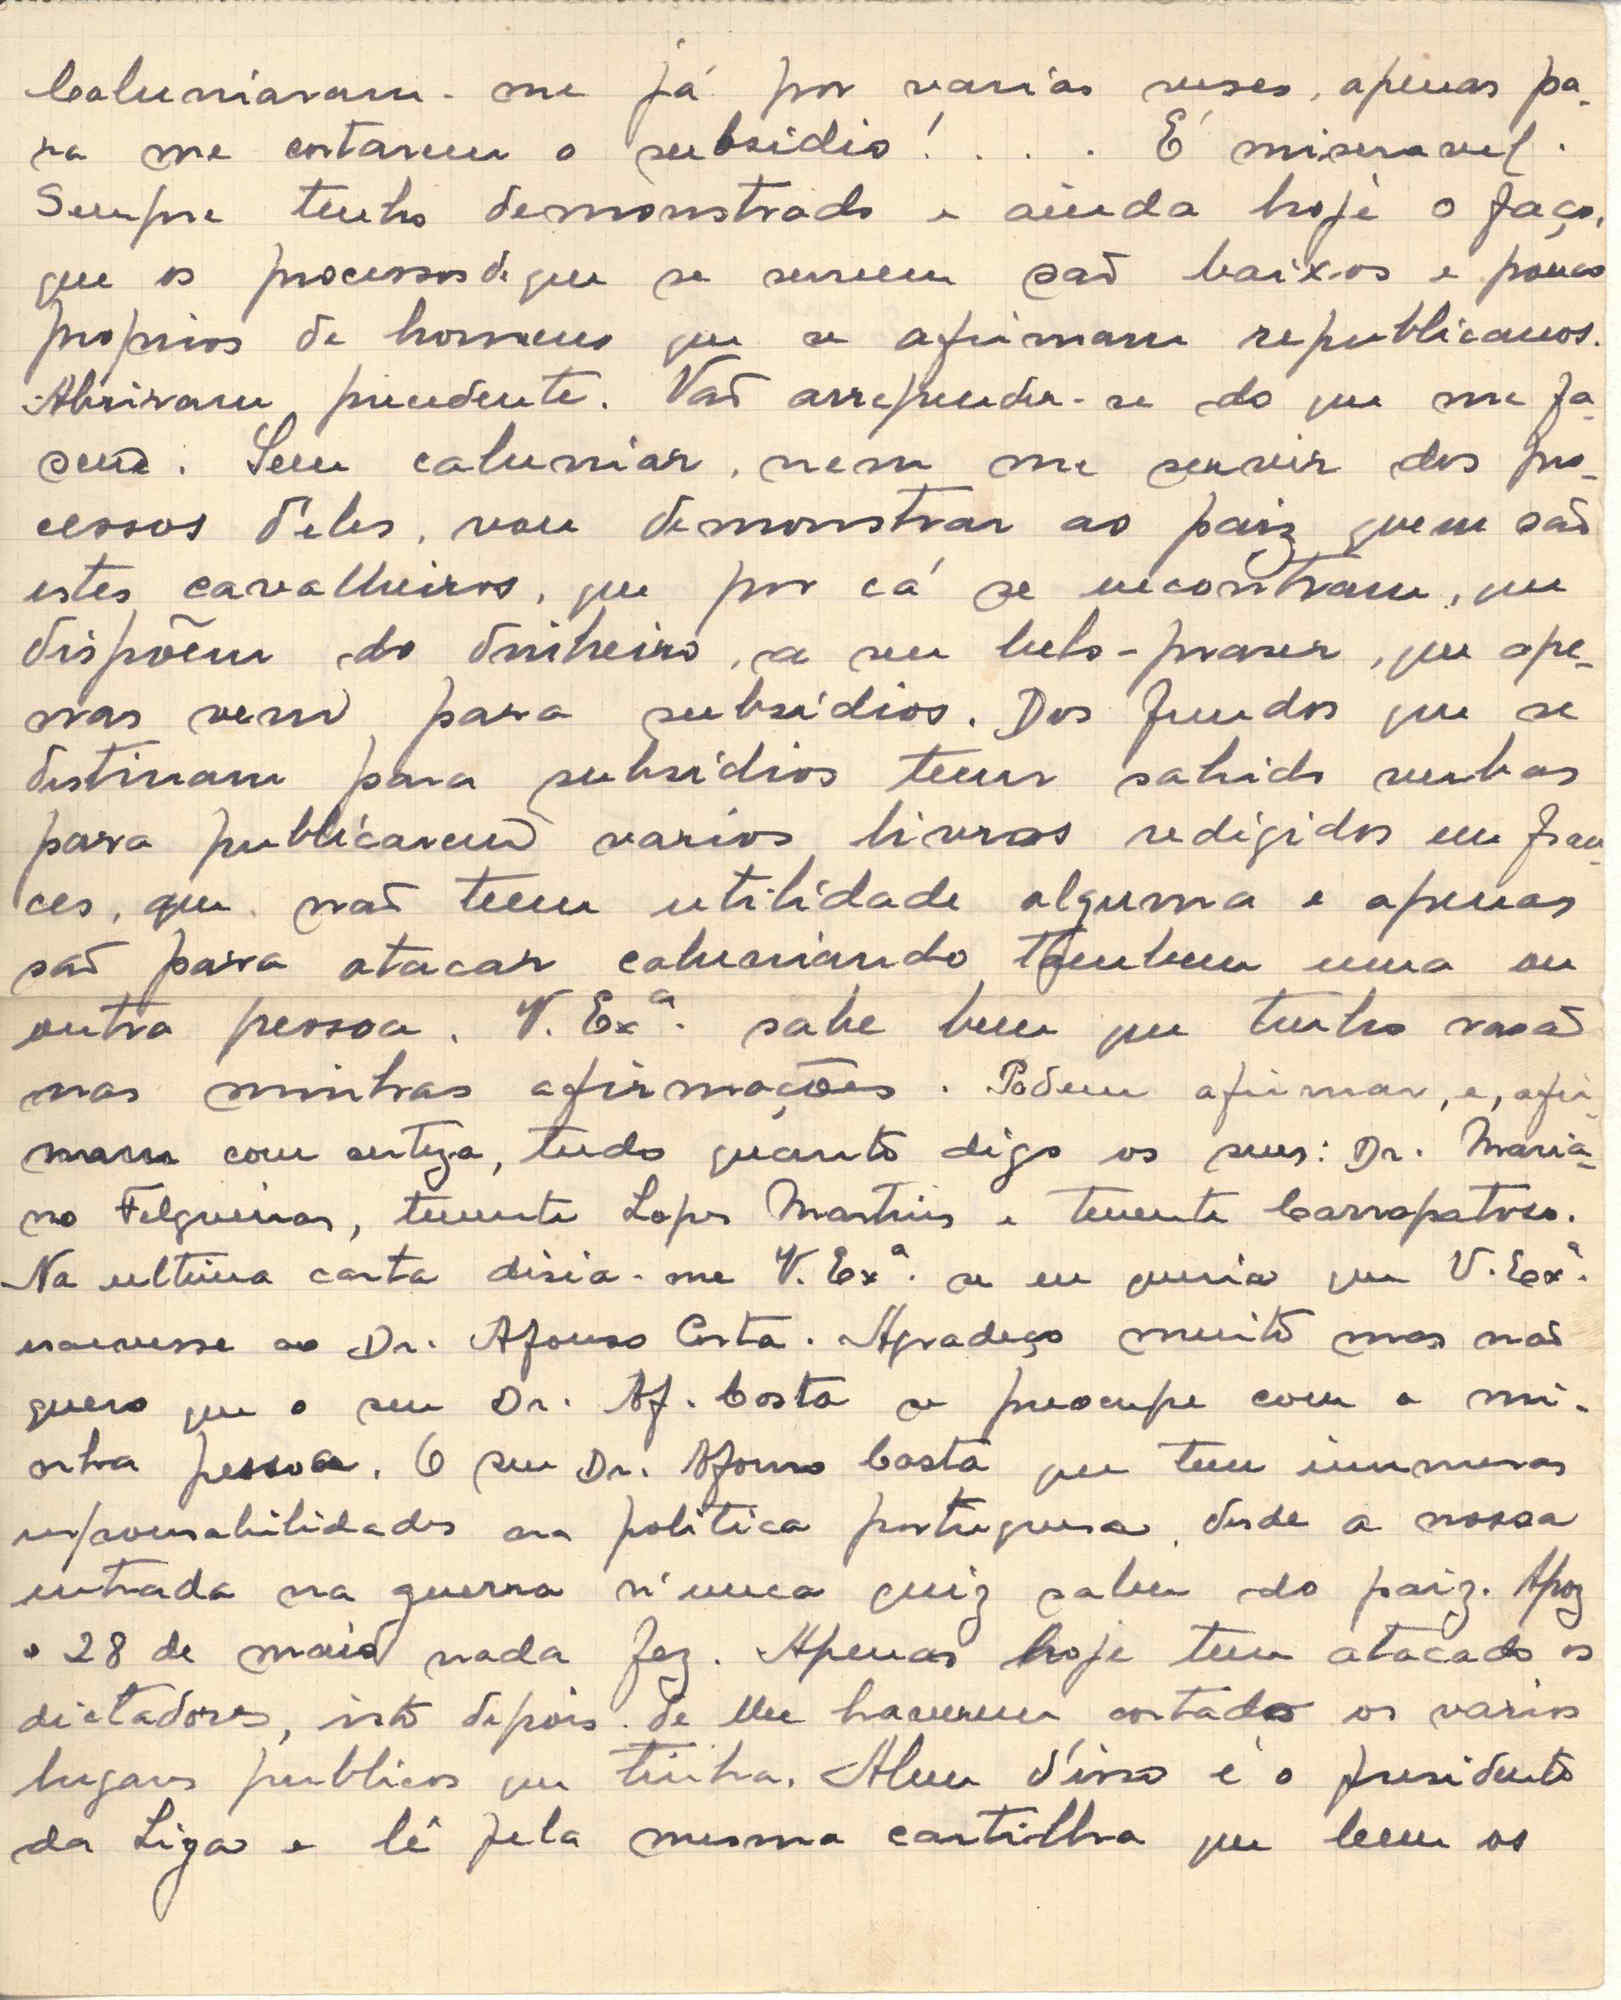 Caluniaram-me já por varias veses, apenas pa-
ra me cortarem o subsidio! . . . É miseravel.
Sempre tenho demonstrado e ainda hoje o faço,
que os processos de que se servem saõ baixos e poucos
proprios de homens que se afirmam republicanos.
Abriram precedente. Vaõ arrepender-se do que me fa-
sem. Sem caluniar, nem me servir dos pro-
cessos d'eles, vou demonstrar ao paiz quem saõ
estes cavalheiros, que por cá se encontram, que
dispõem do dinheiro, a seu belo-praser, que ape-
nas vem para subsidios. Dos fundos que se
destinam para subsidios teem sahido verbas
para publicarem varios livros redigidos em fran-
ces, que naõ teem utilidade alguma e apenas
saõ para atacar caluniando tambem uma ou
outra pessoa. V. Exª. sabe bem que tenho rasaõ
nas minhas afirmações. Podem afirmar, e, afir-
mam com certeza, tudo quanto digo os snrs: Dr. Maria-
no Felgueiras, tenente Lopes Martins e tenente Carrapatoso.
Na ultima carta disia-me V. Exª. se eu queria que V. Exª.
escrevesse ao Dr. Afonso Costa. Agradeço muito mas naõ
quero que o seu Dr. Af. Costa se preocupe com a mi-
nha pessoa. O seu Dr. Afonso Costa que tem inumeras
responsabilidades na politica portuguesa, desde a nossa
entrada na guerra n'unca quiz saber do paiz. Apoz
o 28 de maio nada fez. Apenas hoje tem atacado os
dictadores, isto depois de lhe haverem cortado os varios
lugares publicos que tinha. Alem d'isso é o presidente
da Liga e lê pela mesma cartilha que leem os